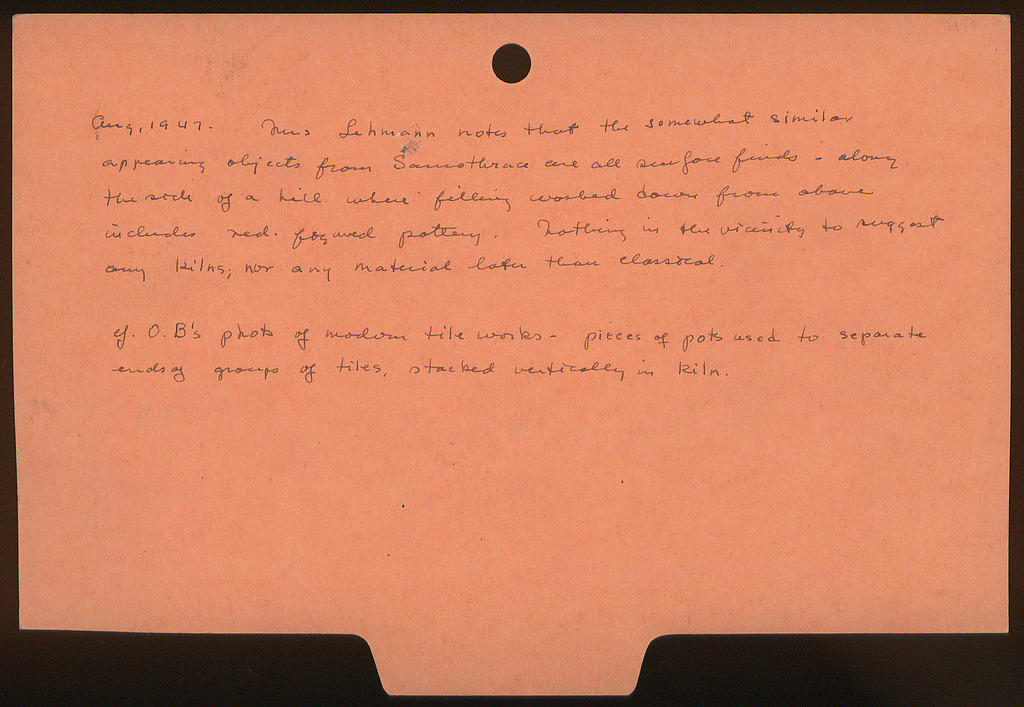 Aug, 1947. Mrs Lehmann notes that the somewhat similar
appearing objects from Samothrace are all surface finds - along
the side of a hill where filling washed down from above
includes red-figured pottery. Nothing in the vicinity to suggest
any kilns; nor any material later than classical.
cf. O.B's photo of modern tile works - pieces of pots used to separate
ends of groups of tiles, stacked vertically in kiln.